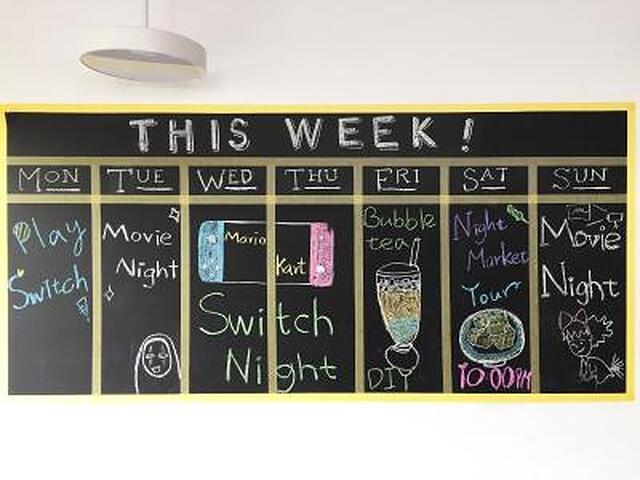 THIS WEEK!
MON TUE WED THU FRI SAT SUN
Play
Switch
Movie
Night
Mario
Kart
Switch
Night
Bubble
tea
DIY
Night
Market
Tour
10:00PM
Movie
Night